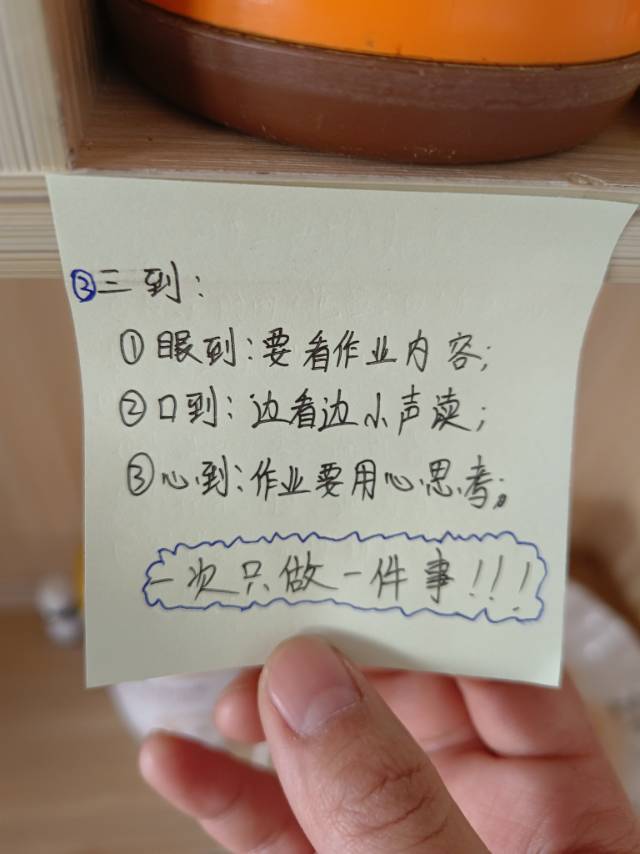 ③三到：
①眼到：要看作业内容；
②口到：边看边小声读；
③心到：作业要用心思考。
一次只做一件事！！！